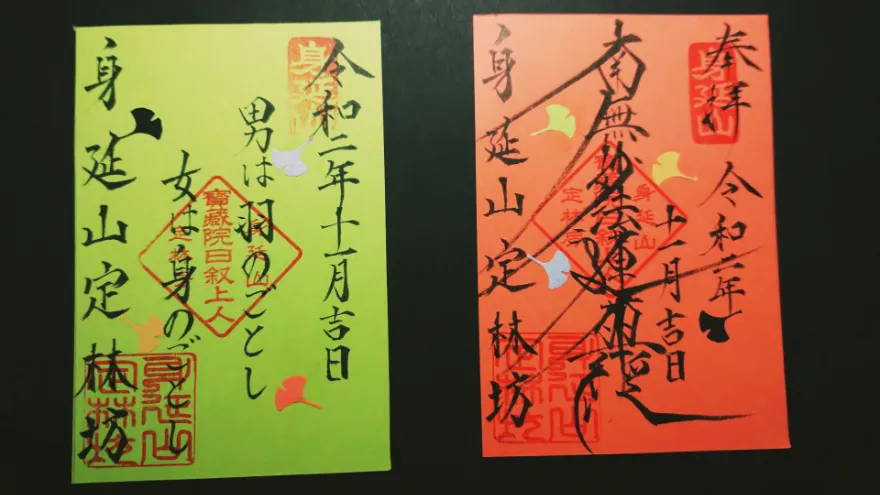 身延山
令和二年十一月吉日
男は羽のごとし
女は身のごとし
身延山
寶蔵院日叙上人
定林坊
身延山定林坊
身延山
定林坊
奉拝
身延山
令和二年
十一月吉日
南無妙法蓮華経
身延山
定林坊
身延山定林坊
身延山
定林坊